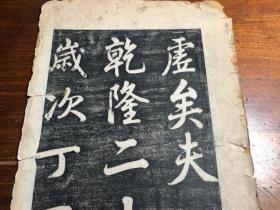 虗矣夫
乾隆二十
歲次丁